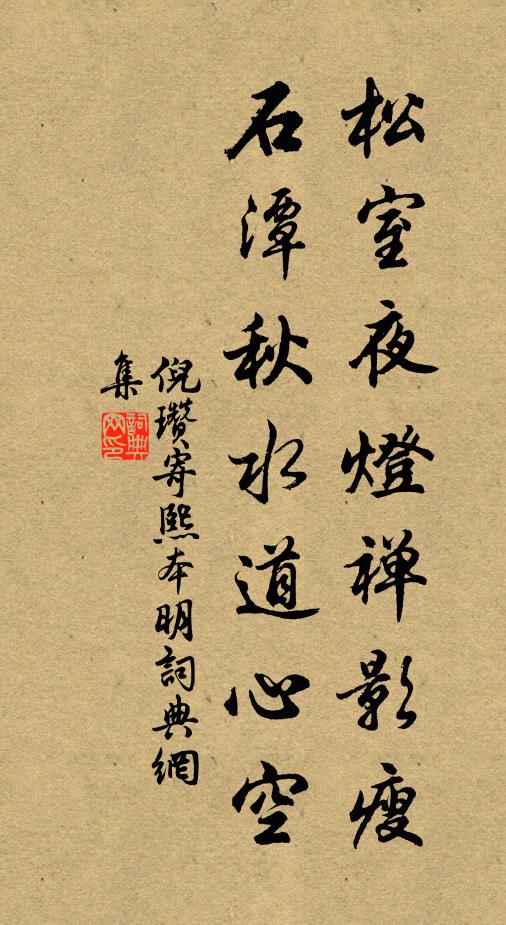 松室夜燈禅影瘦
石潭秋水道心空
倪瓚寄熙本明詞典網
集
詞典網印